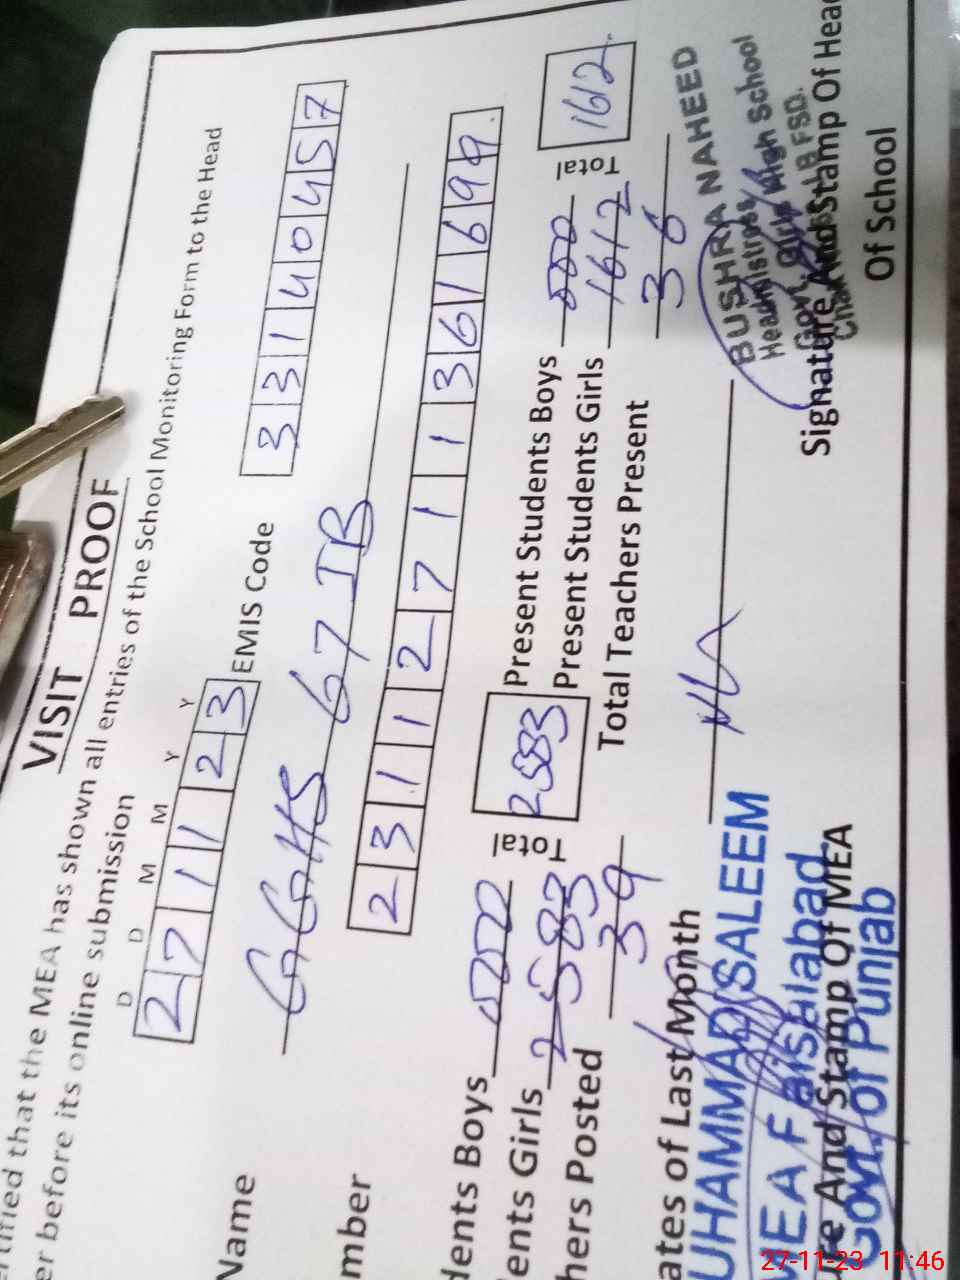 VISIT PROOF
rtified that the MEA has shown all entries of the School Monitoring Form to the Head
er before its online submission
D D M M Y Y
271123 EMIS Code 33140457
Name GGHS 67 JB
mber 23112711361699
dents Boys 000 Total 2583 Present Students Boys 000 Total 1612
ents Girls 2583 Present Students Girls 1612
hers Posted 39 Total Teachers Present 36
ates of Last Month
UHAMMAD SALEEM
MEA Faisalabad
Govt. of Punjab
re And Stamp Of MEA
BUSHRA NAHEED
Headmistress
Govt. Girls High School
Chak JB FSD.
Signature And Stamp Of Head
Of School
27-11-23 11:46